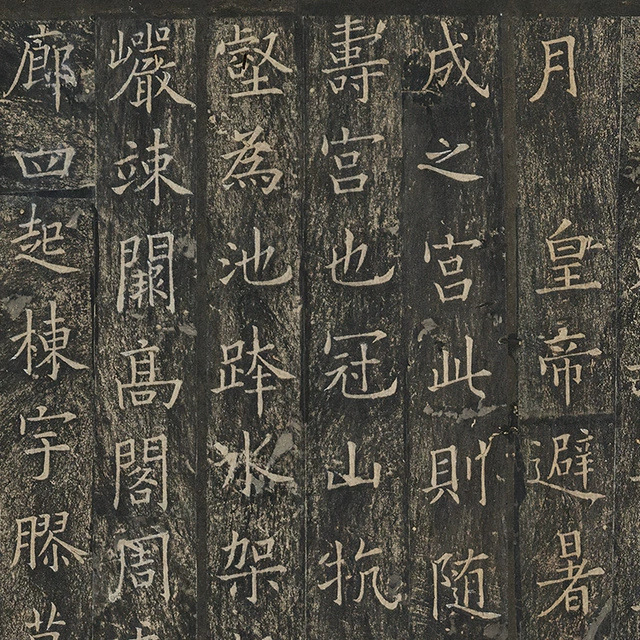 月 皇帝避暑
成之宮此則随
壽宮也冠山抗
壑為池跨水架
巖竦闕高閣周
廊四起棟宇膠